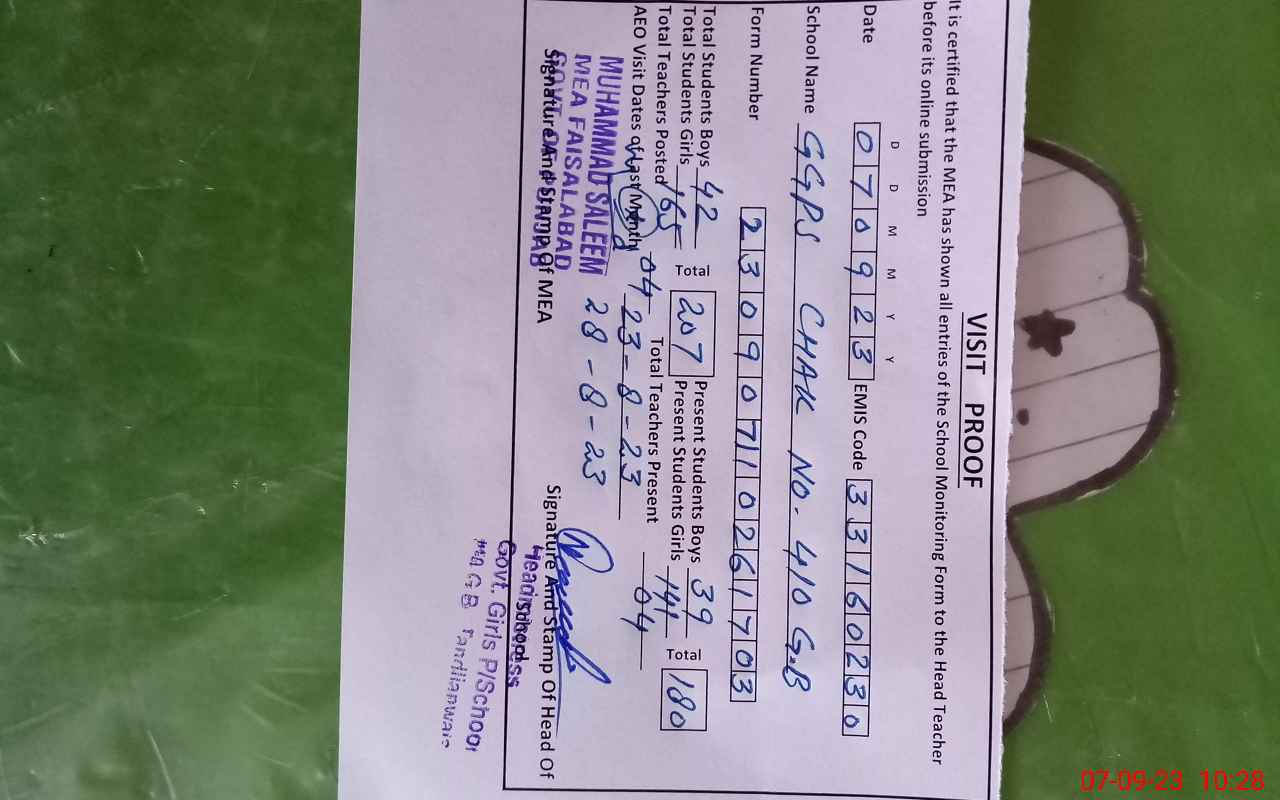 VISIT PROOF
It is certified that the MEA has shown all entries of the School Monitoring Form to the Head Teacher
before its online submission
D D M M Y Y
Date 0 7 0 9 2 3 EMIS Code 3 3 1 6 0 2 3 0
School Name GGPS CHAK NO. 410 G.B
Form Number 2 3 0 9 0 7 1 0 2 6 1 7 0 3
Total Students Boys 42 Present Students Boys 39
Total Students Girls 165 Total 207 Present Students Girls 141 Total 180
Total Teachers Posted 04 Total Teachers Present 04
AEO Visit Dates of Last Month 23-8-23
28-8-23
MUHAMMAD SALEEM
MEA FAISALABAD
GOVT. OF PUNJAB
Signature And Stamp Of MEA
Signature And Stamp Of Head Of
School
Headmistress
Govt. Girls P/School
G B
07-09-23 10:28